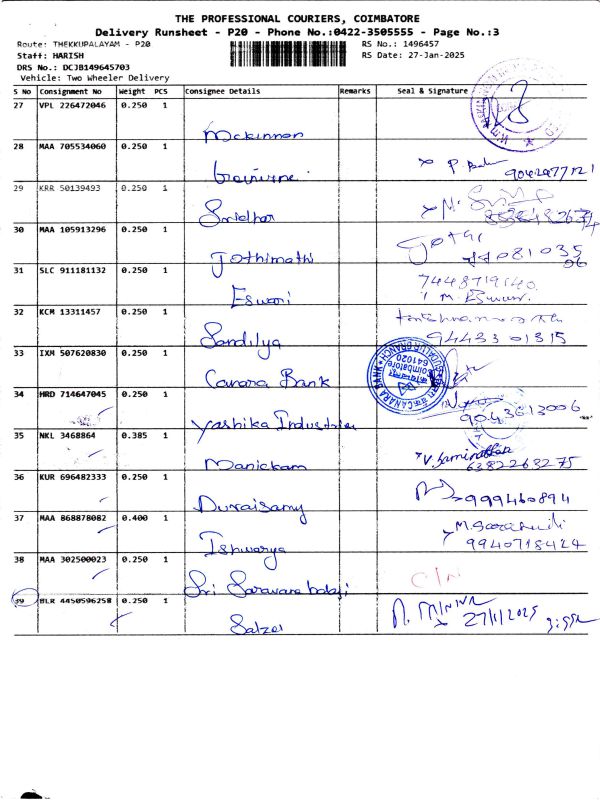 THE PROFESSIONAL COURIERS, COIMBATORE
Delivery Runsheet - P20 - Phone No.:0422-3505555 - Page No.:3
Route: THEKKUPALAYAM - P20 RS No.: 1496457
Staff: HARISH RS Date: 27-Jan-2025
DRS No.: DCJB149645703
Vehicle: Two Wheeler Delivery
S No Consignment No Weight PCS Consignee Details Remarks Seal & Signature
27 VPL 226472046 0.250 1
Mckinnon
28 MAA 705534060 0.250 1
29 KRR 50139493 0.250 1
Sridhar
30 MAA 105913296 0.250 1
Jothimathi
31 SLC 911181132 0.250 1
7448719140.
Eswari M. Eswari.
32 KCM 13311457 0.250 1
Sandilya 94433 01315
33 IXM 507620830 0.250 1
CANARA BANK
Coimbatore
641020
Canara Bank
34 HRD 714647045 0.250 1
9043613006
Yashika Industries
35 NKL 3468864 0.385 1
Manickam 6382268275
36 KUR 696482333 0.250 1
999460894
Duraisamy
37 MAA 868878082 0.400 1
Ishwarya 9940718424
38 MAA 302500023 0.250 1
Sri Saravana balaji
39 BLR 4450596258 0.250 1
27/1/2025
Salzer